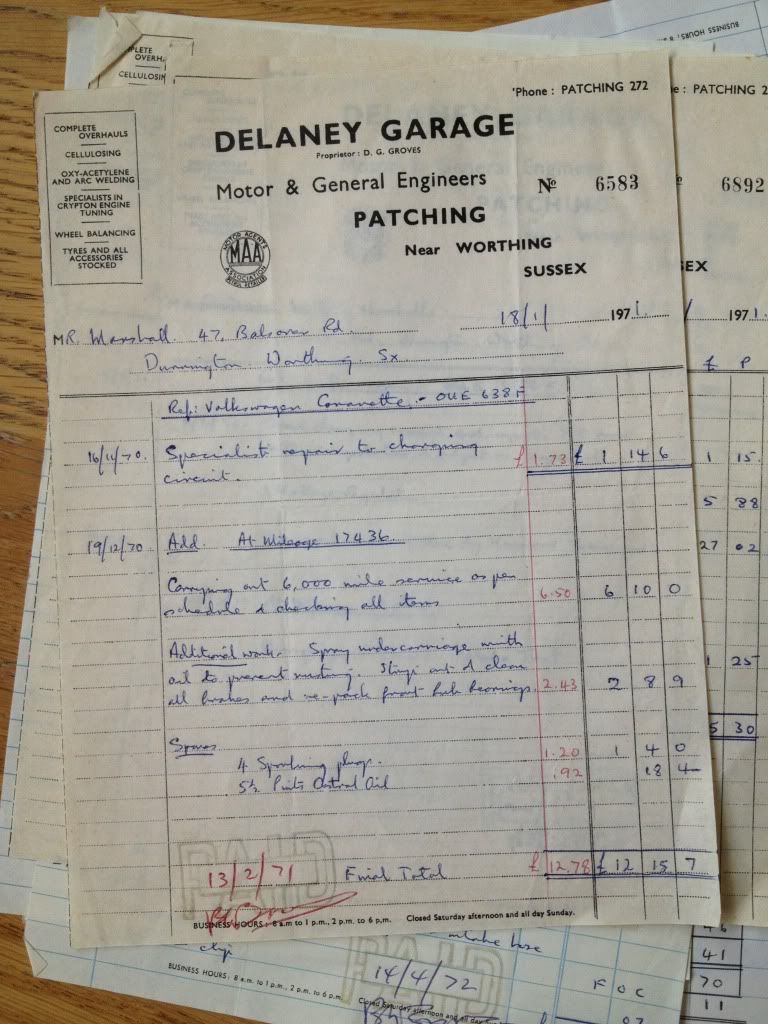 COMPLETE OVERHAULS
CELLULOSING
OXY-ACETYLENE AND ARC WELDING
SPECIALISTS IN CRYPTON ENGINE TUNING
WHEEL BALANCING
TYRES AND ALL ACCESSORIES STOCKED
'Phone : PATCHING 272
DELANEY GARAGE
Proprietor : D. G. GROVES
Motor & General Engineers
№ 6583
PATCHING
MOTOR AGENTS ASSOCIATION
MAA
Near WORTHING
SUSSEX
18/1/ 1971.
MR. Marshall. 47, Rd.
Durrington Worthing Sx.
Ref: Volkswagen - OUE 638F
16/11/70. Specialist repair to charging £ 1.73 £ 1 14 6
circuit.
19/12/70 Add. At Mileage 17436.
Carrying out 6,000 mile service as per 6.50 6 10 0
schedule & checking all items
Additional work. Spray undercarriage with
oil to prevent rusting. out & clean
all brakes and re-pack front hub bearings. 2.43 2 8 9
Spares
4 Sparking plugs. 1.20 1 4 0
5½ Pints Castrol Oil .92 18 4
PAID
13/2/71 Final Total £ 12.78 £ 12 15 7
BUSINESS HOURS : 8 a.m to 1 p.m., 2 p.m. to 6 p.m. Closed Saturday afternoon and all day Sunday.
PLETE
OVERH
CELLULOSIN
BUSINESS HOURS : 8
e : PATCHING 2
6892
SEX
1971.
£ P
1 15
5 88
27 02
1 25
5 30
intake hose
clip
BUSINESS HOURS : 8 a.m. to 1 p.m., 2 p.m. to 6 p.m. Closed Saturday afternoon and all day Su
PAID
14/4/72
F O C
46
41
70
11